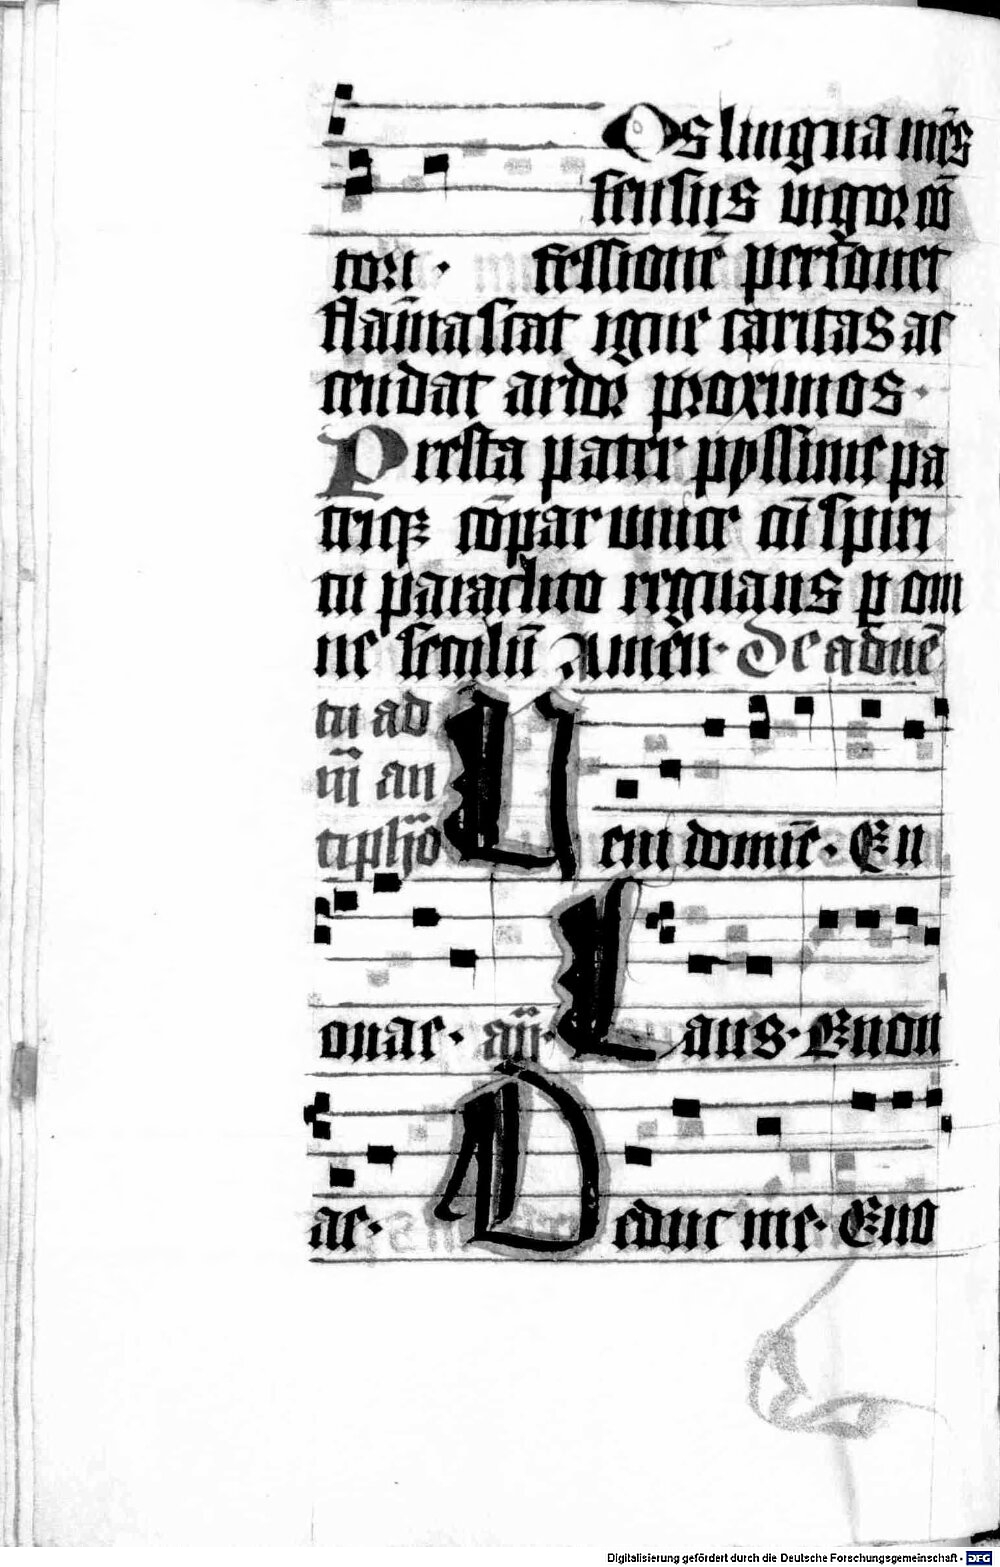 Os lingua mēs
sensus uigor cō
tori · fessionē personet
flāmascat igne caritas ac
cendat ardor proximos ·
Presta pater pyssime pa
triqꝫ cōpar unice cū spiri
tu paraclito regnans ꝑ om
ne seculū Amen · De aduē
tu ad
iij an
tiphō
Ueni domine · Eu
ouae · añ · Laus · Euou
ae · Deduc me · Euo
Digitalisierung gefördert durch die Deutsche Forschungsgemeinschaft - DFG